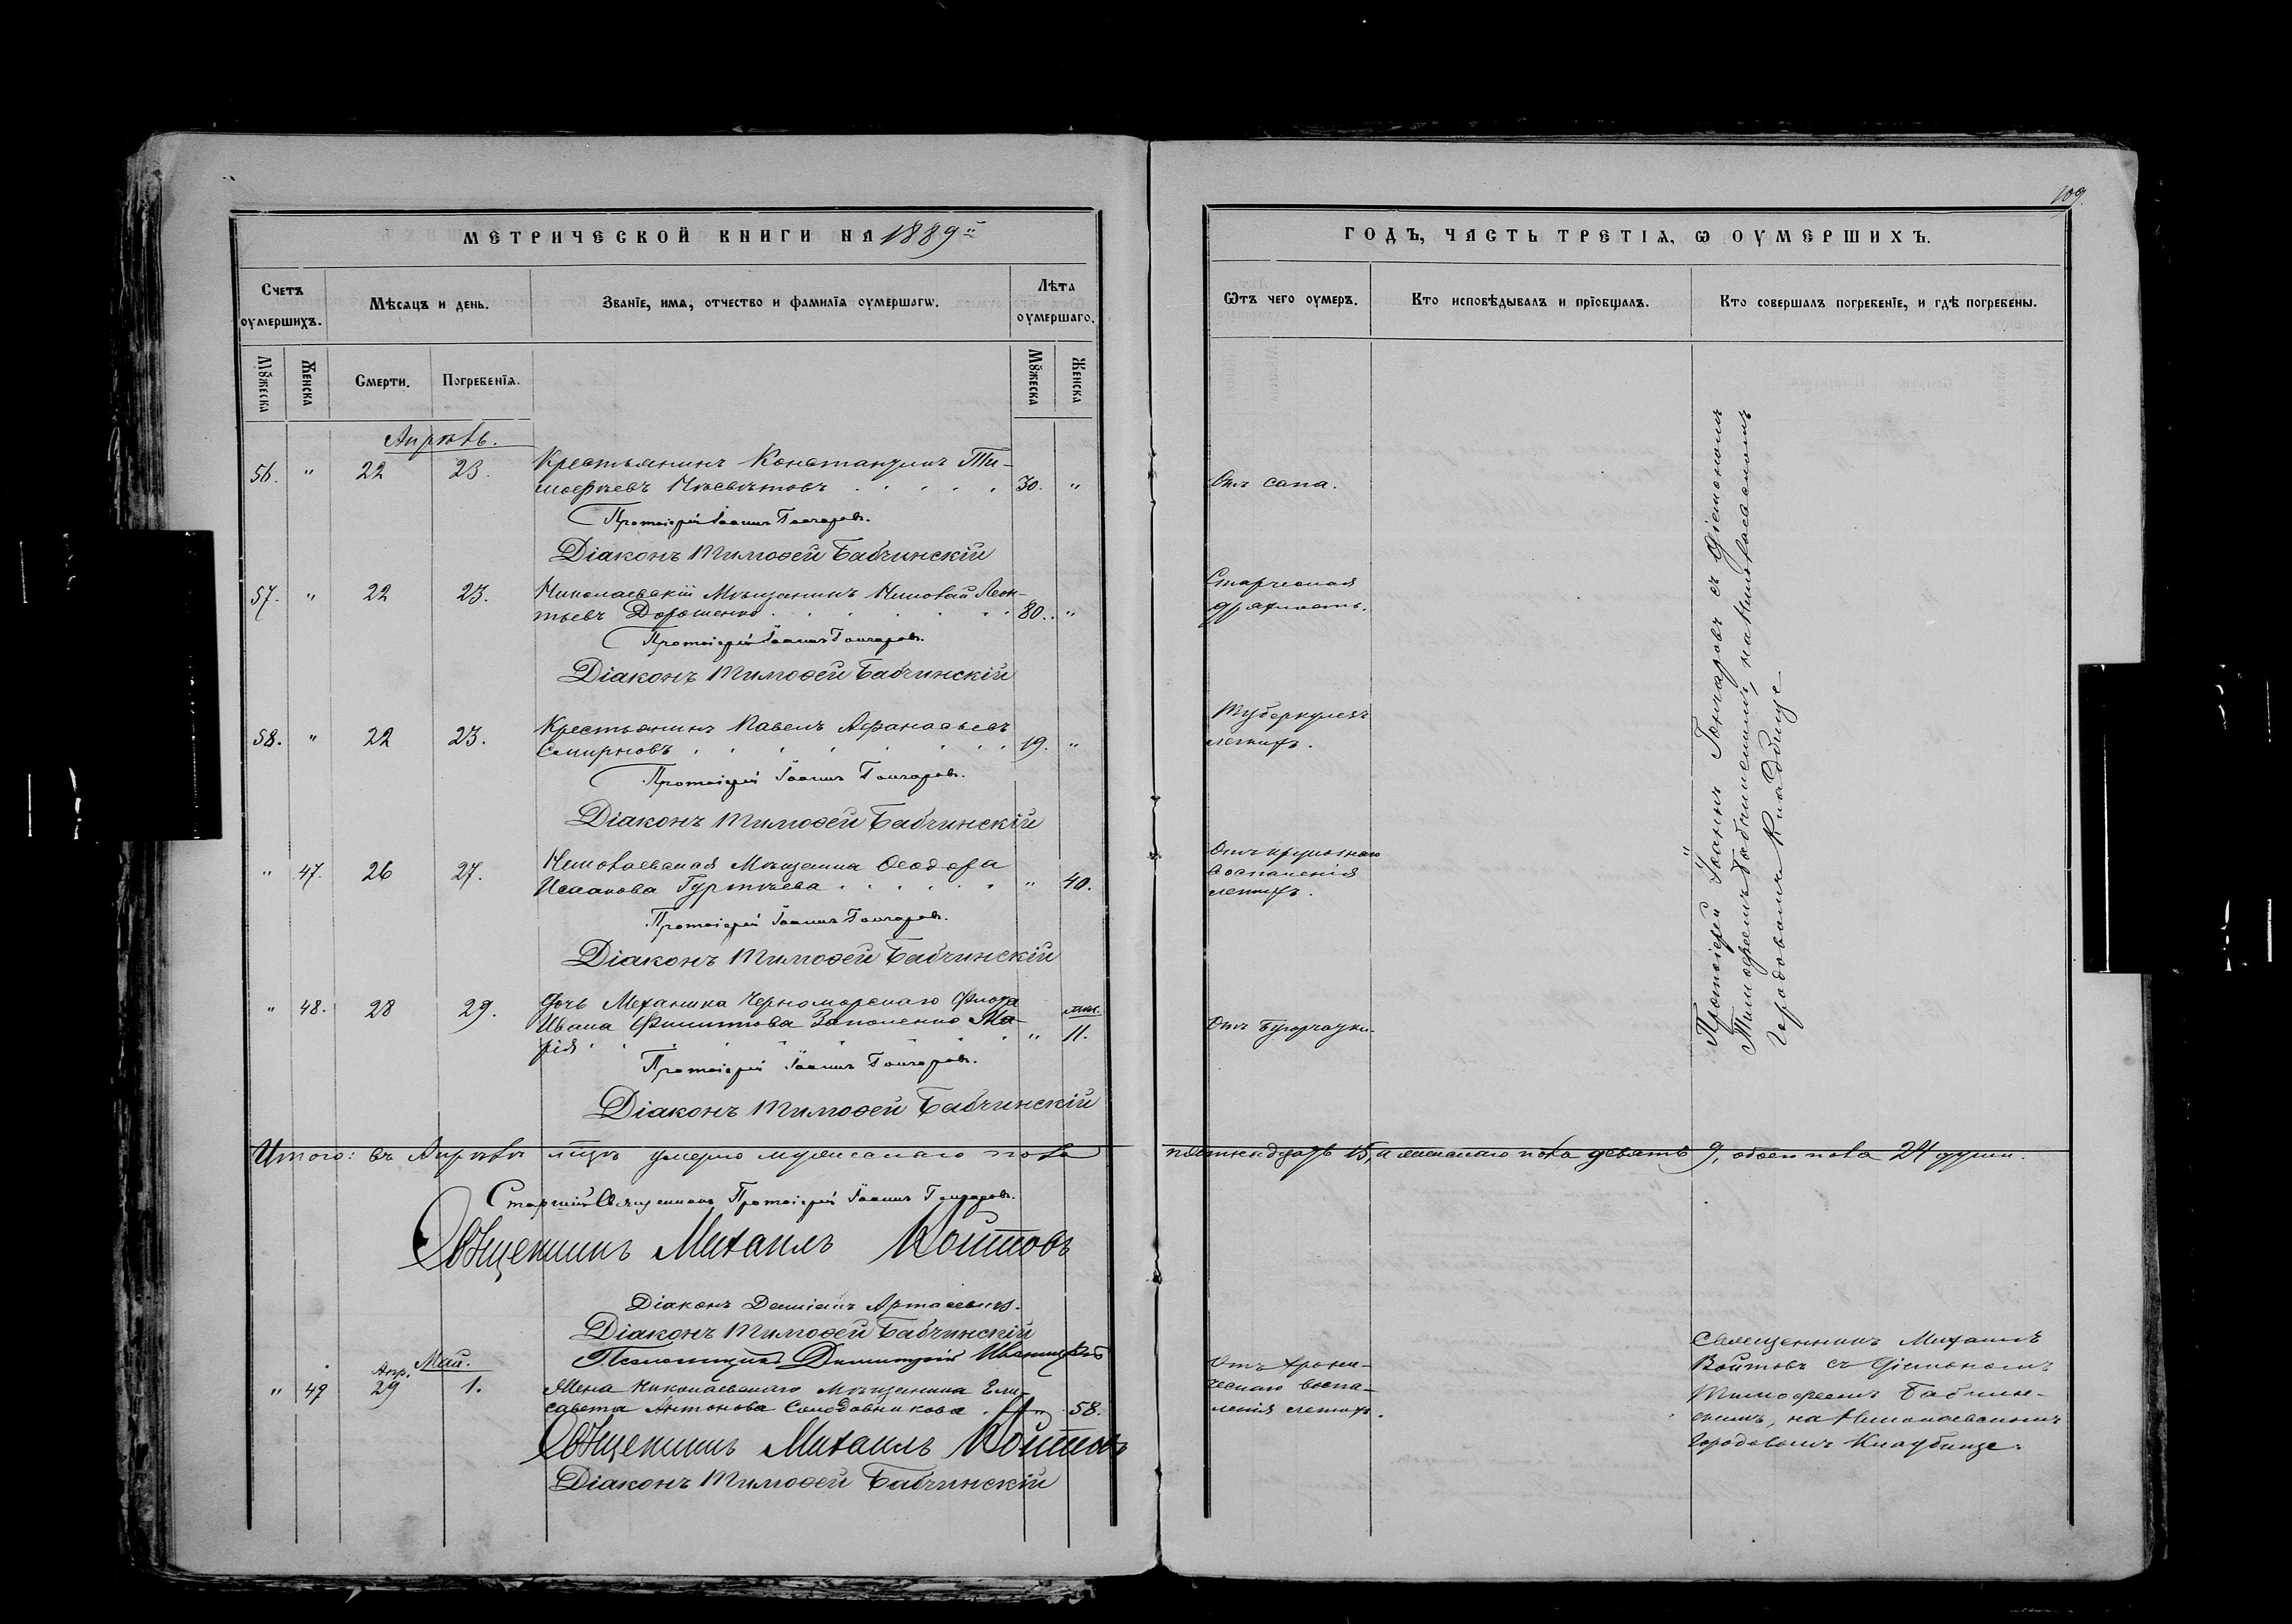 109.
МЕТРИЧЕСКОЙ КНИГИ НА 1889й
ГОДЪ, ЧАСТЬ ТРЕТІЯ, Ѡ ОУМЕРШИХЪ.
Счетъ оумершихъ.
Мѣсяцъ и день.
Званїе, имѧ, отчество и фамилїѧ оумершагѡ.
Лѣта оумершаго.
Ѿтъ чего оумеръ.
Кто исповѣдывалъ и прїобщалъ.
Кто совершалъ погребенїе, и гдѣ погребены.
Мꙋжеска
Женска
Смерти.
Погребенїѧ.
Мꙋжеска
Женска
Апрѣль.
56. " 22 23. Крестьянинъ Константинъ Ти-
мофѣевъ 30. "
Отъ сапа.
Протоіерей Іоаннъ Гончаровъ.
Діаконъ Тимоѳей Бабчинскій
57. " 22 23. Николаевскій Мѣщанинъ Николай Леон-
тьевъ Дорошенко 80. "
Старческая
дряхлость.
Протоіерей Іоаннъ Гончаровъ.
Діаконъ Тимоѳей Бабчинскій
58. " 22 23. Крестьянинъ Павелъ Афанасьевъ
Смирновъ 19. "
Туберкулезъ
легкихъ.
Протоіерей Іоаннъ Гончаровъ.
Діаконъ Тимоѳей Бабчинскій
" 47. 26 27. Николаевская Мѣщанка Ѳеодора
Исаакова Гуртѣева " 40.
Отъ крупознаго
воспаленія
легкихъ.
Протоіерей Іоаннъ Гончаровъ.
Діаконъ Тимоѳей Бабчинскій
" 48. 28 29. Дочь Механика Черноморскаго Флота
Ивана Филиппова Заполенко Ма-
рія " мѣс. 11.
Отъ бугорчатки.
Протоіерей Іоаннъ Гончаровъ.
Діаконъ Тимоѳей Бабчинскій
Протоіерей Іоаннъ Гончаровъ съ Діакономъ
Тимофеемъ Бабчинскимъ, на Николаевскомъ
Городовомъ Кладбище
Итого: въ Апрѣлѣ мцѣ умерло мужескаго пола пятнадцать 15, и женскаго пола девять 9, обоего пола 24 души.
Старшій Священникъ Протоіерей Іоаннъ Гончаровъ.
Священникъ Михаилъ Войтовъ
Діаконъ Даміанъ
Діаконъ Тимоѳей Бабчинскій
Псаломщикъ Димитрій
Май.
Апр.
" 49 29 1. Жена Николаевскаго Мѣщанина Ели-
савета Антонова Солодовникова " 58.
Отъ хрони-
ческаго воспа-
ленія легкихъ.
Священникъ Михаилъ
Войтовъ съ Діакономъ
Тимофеемъ Бабчин-
скимъ, на Николаевскомъ
Городовомъ Кладбище.
Священникъ Михаилъ Войтовъ
Діаконъ Тимоѳей Бабчинскій